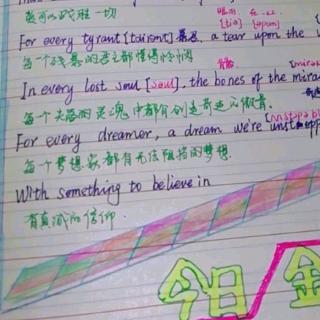 可以战胜一切
For every tyrant [tairənt] 暴君, a tear upon the
每一个残暴的君主都懂得怜悯
In every lost soul [soul], the bones of the mira
每一个失落的灵魂中都有创造奇迹的脊骨
For every dreamer, a dream we're unstopp
每一个梦想家都有无法阻挡的梦想.
With something to believe in
有真诚的信仰.
今日 金